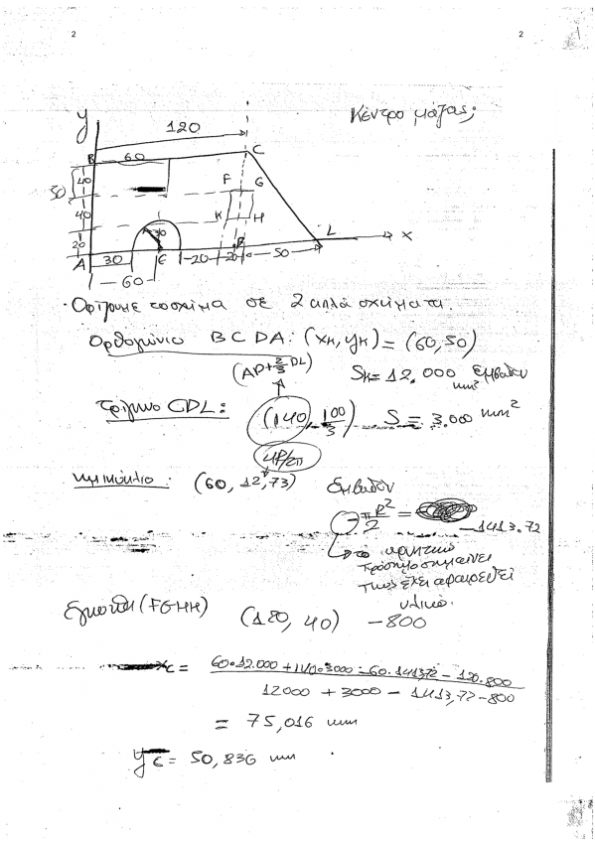 2
2
1
Κέντρο μάζας;
y
120
B
60
C
40
F
G
50
40
K
H
L
20
x
A
30
E
20
20
50
60
Ορίζουμε το σχήμα σε 2 απλά σχήματα.
Ορθογώνιο BCDA: (xκ, yκ) = (60, 50)
(AD+2/3 DL)
Sκ = 12.000 mm² εμβαδόν
Τρίγωνο CDL: (140, 100/3) S = 3.000 mm²
4R/3π
Ημικύκλιο: (60, 12,73) Εμβαδόν
- πR²/2 =
-1413.72
το αρνητικό
πρόσημο σημαίνει
πως έχει αφαιρεθεί
υλικό.
Εγκοπή (FGHH) (120, 40) -800
xc = 60·12.000 + 140·3000 - 60·1413,72 - 120·800
12000 + 3000 - 1413,72 - 800
= 75,016 mm
yc = 50,836 mm